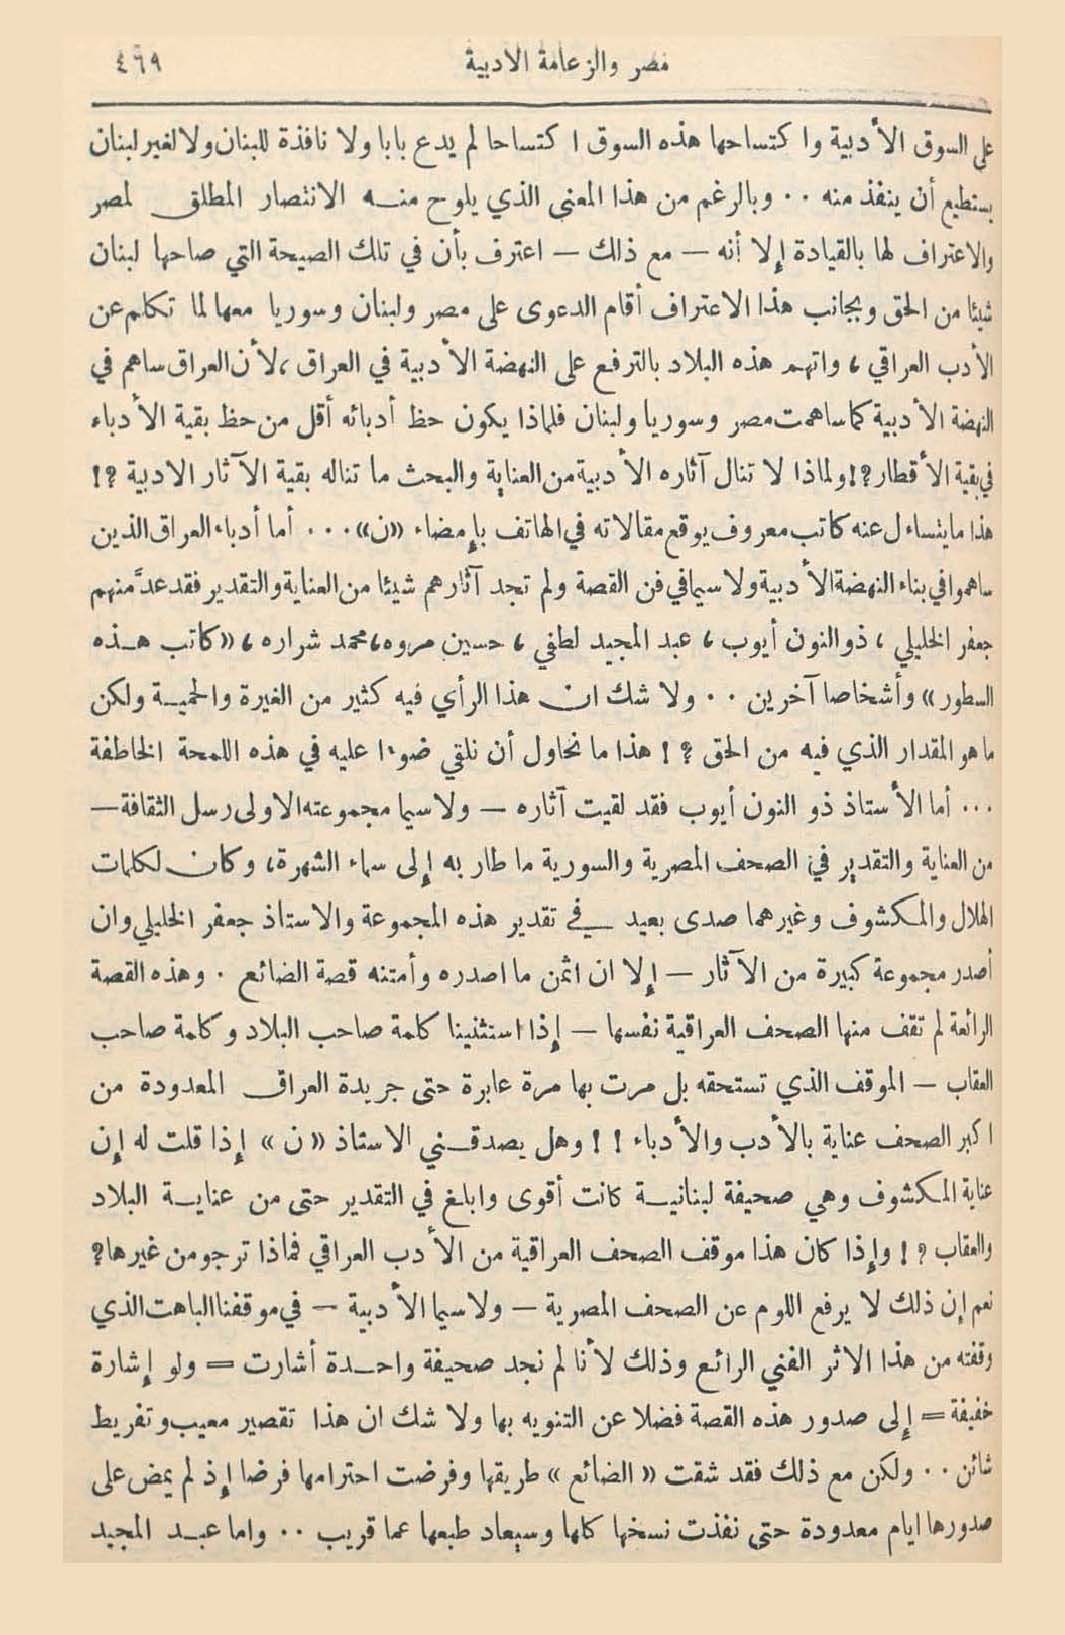 مصر والزعامة الادبية
٤٦٩
على السوق الأدبية واكتساحها هذه السوق اكتساحا لم يدع بابا ولا نافذة للبنان ولا لغير لبنان
يستطيع أن ينفذ منه ٠٠ وبالرغم من هذا المعنى الذي يلوح منه الانتصار المطلق لمصر
والاعتراف لها بالقيادة إلا أنه — مع ذلك — اعترف بأن في تلك الصيحة التي صاحها لبنان
شيئا من الحق وبجانب هذا الاعتراف أقام الدعوى على مصر ولبنان وسوريا معها لما تكلم عن
الأدب العراقي، واتهم هذه البلاد بالترفع على النهضة الأدبية في العراق، لأن العراق ساهم في
النهضة الأدبية كما ساهمت مصر وسوريا ولبنان فلماذا يكون حظ أدبائه أقل من حظ بقية الأدباء
في بقية الأقطار؟! ولماذا لا تنال آثاره الأدبية من العناية والبحث ما تناله بقية الآثار الادبية ؟!
هذا ما يتساءل عنه كاتب معروف يوقع مقالاته في الهاتف بإمضاء «ن» ٠٠٠ أما أدباء العراق الذين
ساهموا في بناء النهضة الأدبية ولا سيما في فن القصة ولم تجد آثارهم شيئا من العناية والتقدير فقد عدَّ منهم
جعفر الخليلي، ذو النون أيوب، عبد المجيد لطفي، حسين مروه، محمد شراره، «كاتب هذه
السطور» وأشخاصا آخرين ٠٠ ولا شك ان هذا الرأي فيه كثير من الغيرة والحمية ولكن
ما هو المقدار الذي فيه من الحق ؟! هذا ما نحاول أن نلقي ضوءا عليه في هذه اللمحة الخاطفة
٠٠٠ أما الأستاذ ذو النون أيوب فقد لقيت آثاره — ولا سيما مجموعته الاولى رسل الثقافة —
من العناية والتقدير في الصحف المصرية والسورية ما طار به إلى سماء الشهرة، وكان لكلمات
الهلال والمكشوف وغيرهما صدى بعيد في تقدير هذه المجموعة والاستاذ جعفر الخليلي وان
أصدر مجموعة كبيرة من الآثار — إلا ان اثمن ما اصدره وأمتنه قصة الضائع ٠ وهذه القصة
الرائعة لم تقف منها الصحف العراقية نفسها — إذا استثنينا كلمة صاحب البلاد وكلمة صاحب
العقاب — الموقف الذي تستحقه بل مرت بها مرة عابرة حتى جريدة العراق المعدودة من
اكبر الصحف عناية بالأدب والأدباء !! وهل يصدقني الاستاذ «ن» إذا قلت له إن
عناية المكشوف وهي صحيفة لبنانية كانت أقوى وابلغ في التقدير حتى من عناية البلاد
والعقاب ؟! وإذا كان هذا موقف الصحف العراقية من الأدب العراقي فماذا ترجو من غيرها؟
نعم إن ذلك لا يرفع اللوم عن الصحف المصرية — ولا سيما الأدبية — في موقفنا الباهت الذي
وقفته من هذا الاثر الفني الرائع وذلك لأنا لم نجد صحيفة واحدة أشارت = ولو إشارة
خفيفة = إلى صدور هذه القصة فضلا عن التنويه بها ولا شك ان هذا تقصير معيب وتفريط
شائن ٠٠ ولكن مع ذلك فقد شقت «الضائع» طريقها وفرضت احترامها فرضا إذ لم يمض على
صدورها ايام معدودة حتى نفذت نسخها كلها وسيعاد طبعها عما قريب ٠٠ واما عبد المجيد